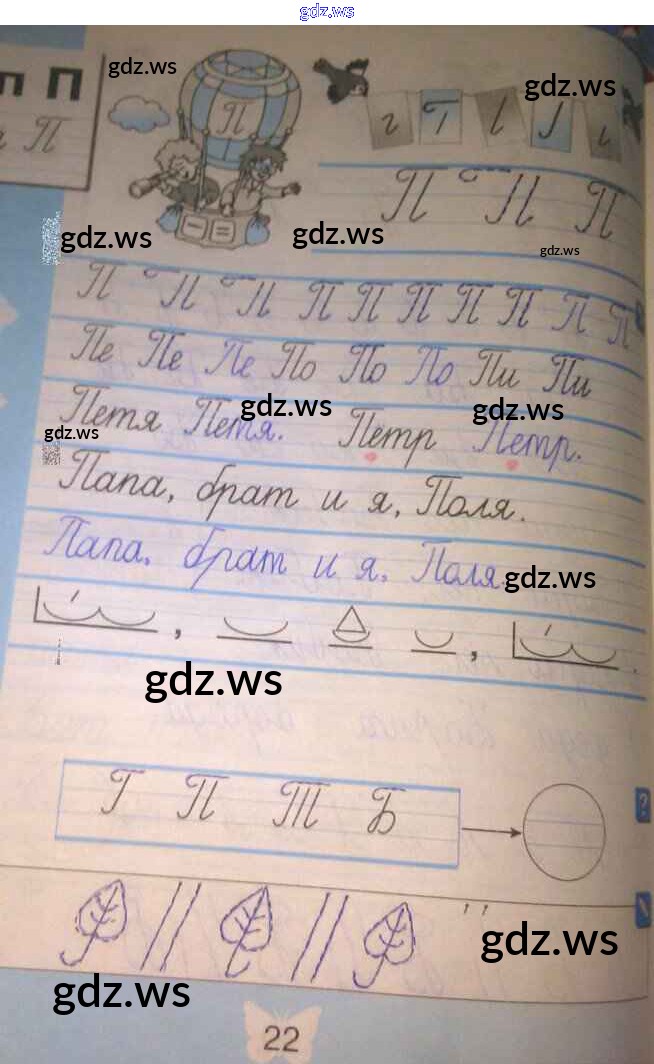 gdz.ws
п П
gdz.ws
П
П
г Г
gdz.ws
П П П
gdz.ws
gdz.ws
gdz.ws
П П П П П П П П П П
Пе Пе Пе По По По Пи Пи
Петя Петя. Петр Петр.
gdz.ws
gdz.ws
gdz.ws
Папа, брат и я, Поля.
Папа, брат и я, Поля
gdz.ws
gdz.ws
Г П Т Б
?
gdz.ws
gdz.ws
22